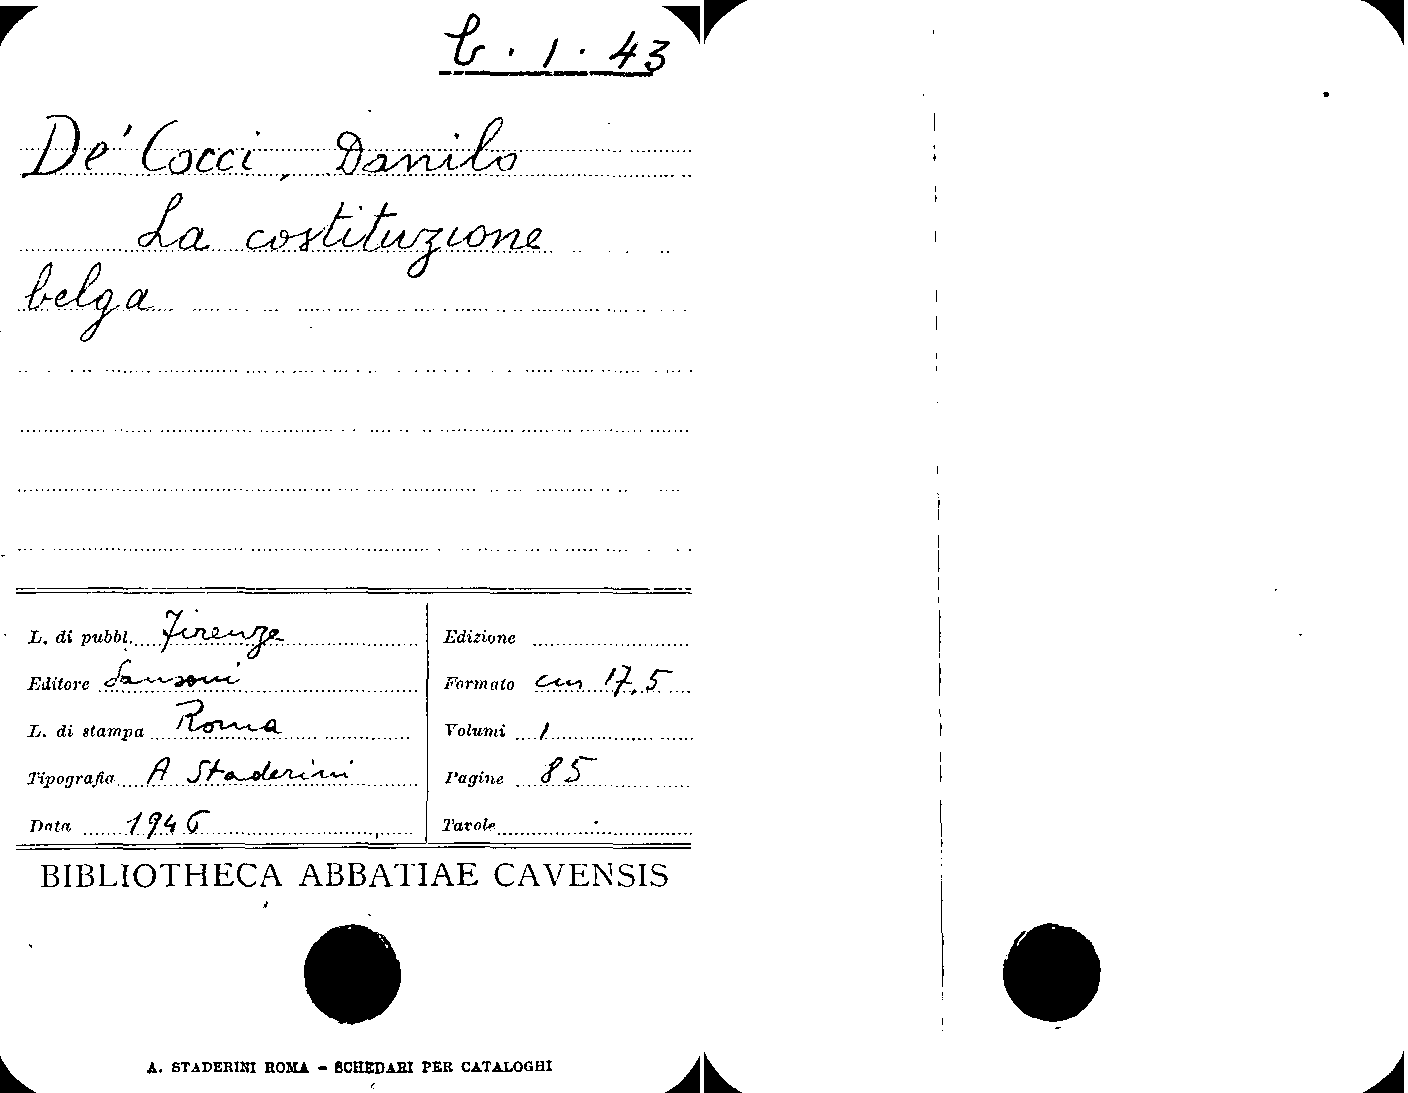 b. 1. 43
De' Cocci, Danilo
La costituzione
belga
L. di pubbl. Firenze
Editore Sansoni
L. di stampa Roma
Tipografia A Staderini
Data 1946
Edizione
Formato cm 17,5
Volumi 1
Pagine 85
Tavole
BIBLIOTHECA ABBATIAE CAVENSIS
A. STADERINI ROMA - SCHEDARI PER CATALOGHI